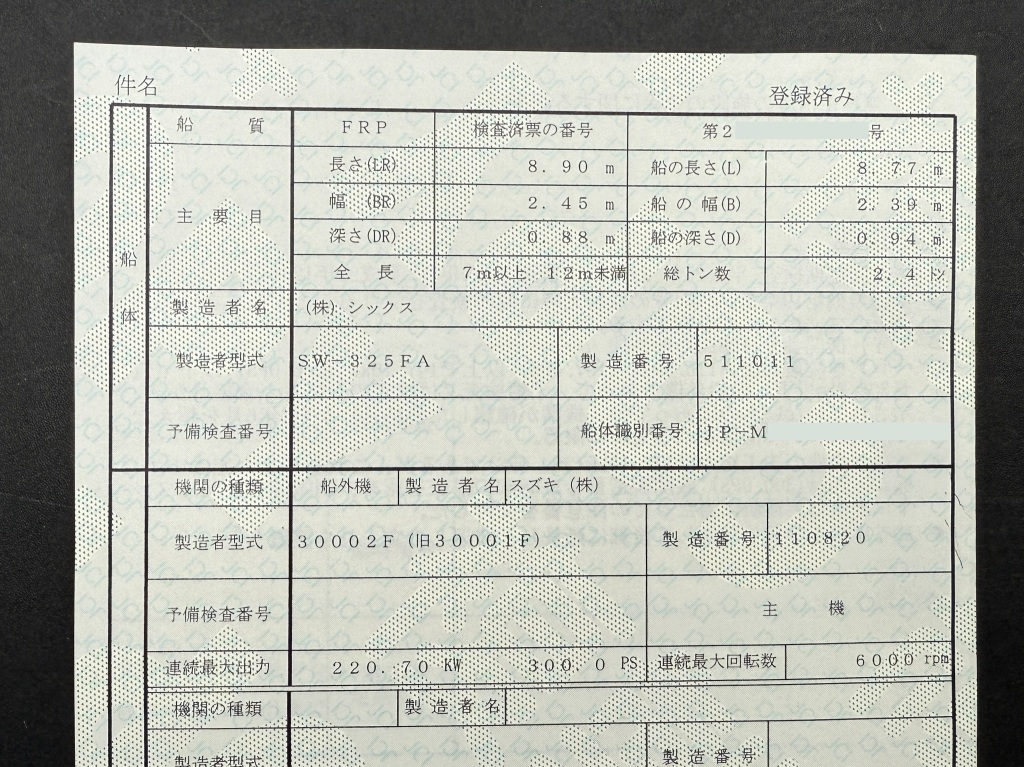 件名
登録済み
船 質 ＦＲＰ 検査済票の番号 第２ 号
船体
主要目
長さ(LR) ８．９０ ｍ 船の長さ(L) ８．７７ ｍ
幅 (BR) ２．４５ ｍ 船の幅(B) ２．３９ ｍ
深さ(DR) ０．８８ ｍ 船の深さ(D) ０．９４ ｍ
全長 ７ｍ以上 １２ｍ未満 総トン数 ２．４ トン
製造者名 （株）シックス
製造者型式 ＳＷ－３２５ＦＡ 製造番号 ５１１０１１
予備検査番号 船体識別番号 ＪＰ－Ｍ
機関の種類 船外機 製造者名 スズキ（株）
製造者型式 ３０００２Ｆ（旧３０００１Ｆ） 製造番号 １１０８２０
予備検査番号 主機
連続最大出力 ２２０．７０ KW ３００．０ PS 連続最大回転数 ６０００ rpm
機関の種類 製造者名
製造者型式 製造番号